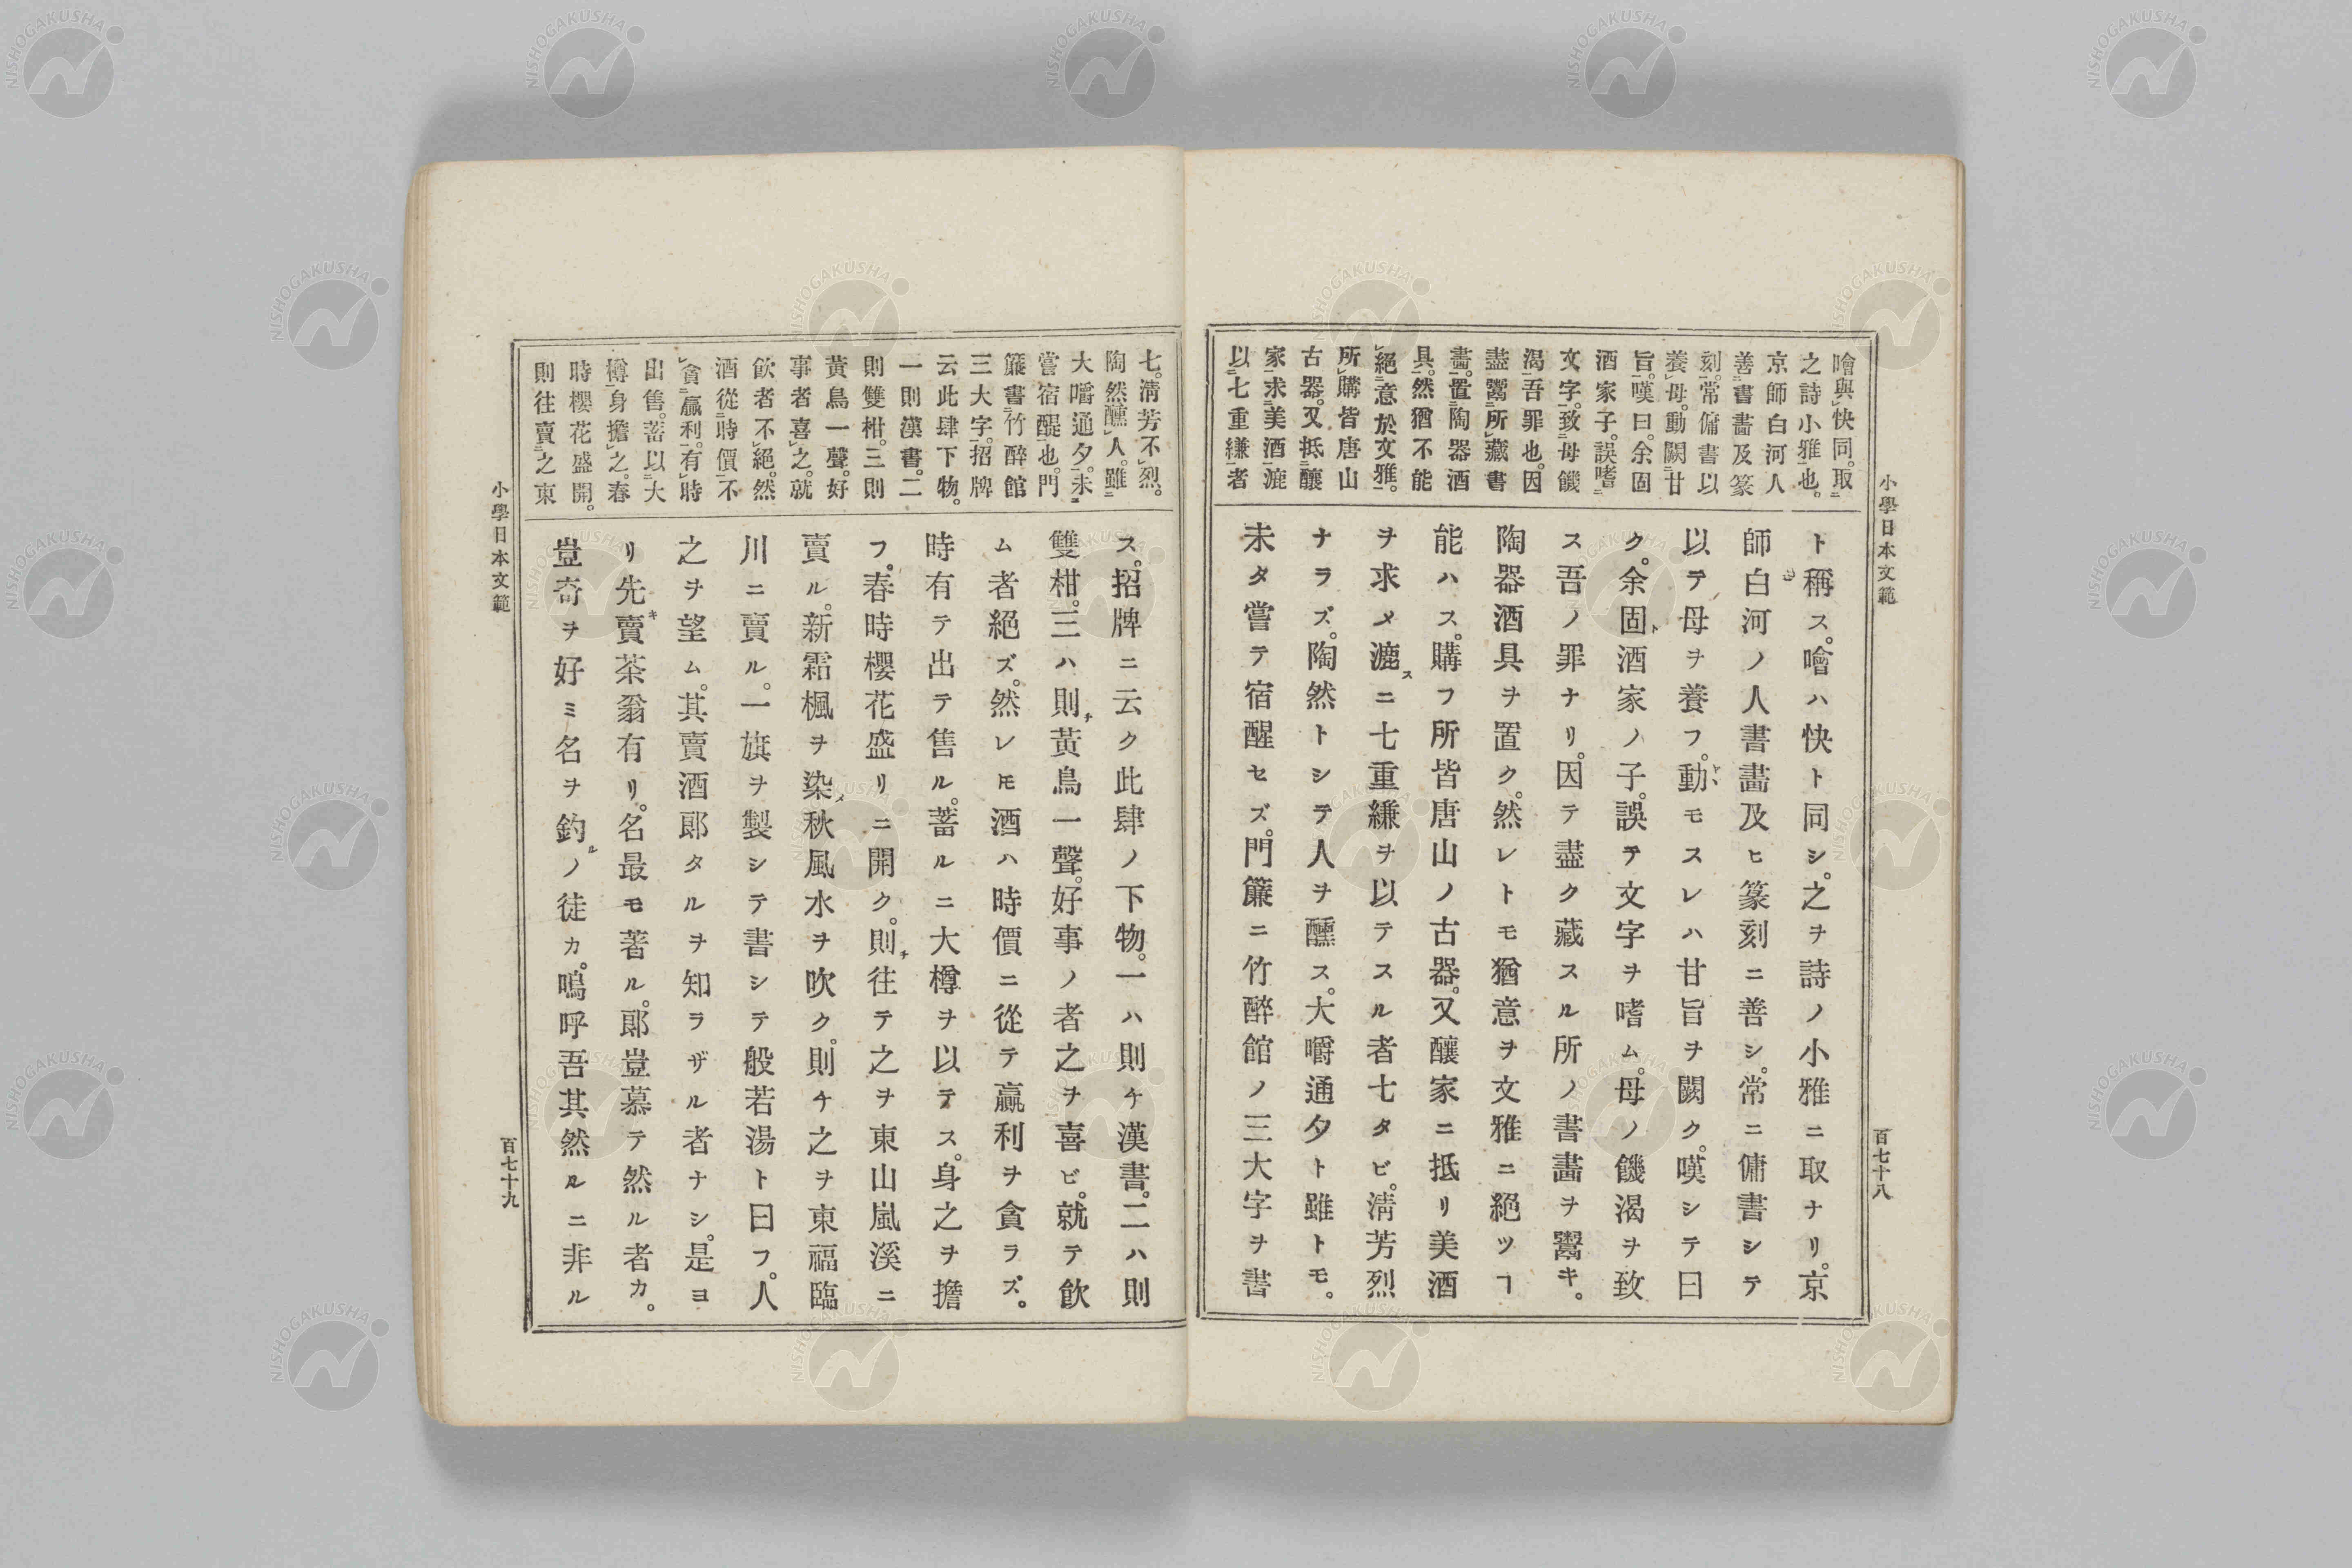 小學日本文範
百七十八
噲與㆑快同。取㆓
之詩小雅㆒也。
京師白河人
善㆓書畵及篆
刻㆒。常傭書以
養㆑母。動闕㆓甘
旨㆒。嘆曰。余固
酒家子。誤嗜㆓
文字㆒。致㆓母饑
渴㆒吾罪也。因
盡鬻㆓所㆑藏書
畵㆒。置㆓陶器酒
具㆒。然猶不能
㆑絕㆓意於文雅㆒。
所㆑購皆唐山
古器。又抵㆓釀
家㆒求㆓美酒㆒漉
以㆓七重縑㆒者
ト稱ス。噲ハ快ト同シ。之ヲ詩ノ小雅ニ取ナリ。京
師白河ノ人書畵及ヒ篆刻ニ善シ。常ニ傭書シテ
以テ母ヲ養フ。動モスレハ甘旨ヲ闕ク。嘆シテ曰
ク。余固酒家ノ子。誤テ文字ヲ嗜ム。母ノ饑渴ヲ致
ス吾ノ罪ナリ。因テ盡ク藏スル所ノ書畵ヲ鬻キ。
陶器酒具ヲ置ク。然レトモ猶意ヲ文雅ニ絕ツヿ
能ハス。購フ所皆唐山ノ古器。又釀家ニ抵リ美酒
ヲ求メ漉スニ七重縑ヲ以テスル者七タビ。淸芳烈
ナラズ。陶然トシテ人ヲ醺ス。大嚼通夕ト雖トモ。
未タ嘗テ宿醒セズ。門簾ニ竹醉館ノ三大字ヲ書
七。淸芳不㆑烈。
陶然醺㆑人。雖㆓
大嚼通夕㆒。未㆓
嘗宿醒㆒也。門
簾書㆓竹醉館
三大字㆒。招牌
云此肆下物。
一則漢書。二
則雙柑。三則
黃鳥一聲。好
事者喜㆑之。就
飮者不㆑絕。然
酒從㆓時價㆒不
㆑貪㆓贏利㆒。有㆑時
出售。蓄以㆓大
樽㆒身擔㆑之。春
時櫻花盛開。
則往賣㆓之東
ス。招牌ニ云ク此肆ノ下物。一ハ則チ漢書。二ハ則
雙柑。三ハ則チ黃鳥一聲。好事ノ者之ヲ喜ビ。就テ飮
ム者絕ズ。然レ𪜈酒ハ時價ニ從テ贏利ヲ貪ラズ。
時有テ出テ售ル。蓄ルニ大樽ヲ以テス。身之ヲ擔
フ。春時櫻花盛リニ開ク。則チ往テ之ヲ東山嵐溪ニ
賣ル。新霜楓ヲ染メ秋風水ヲ吹ク。則チ之ヲ東福臨
川ニ賣ル。一旗ヲ製シテ書シテ般若湯ト曰フ。人
之ヲ望ム。其賣酒郞タルヲ知ラザル者ナシ。是ヨ
リ先キ賣茶翁有リ。名最モ著ル。郞豈慕テ然ル者カ。
豈奇ヲ好ミ名ヲ釣ルノ徒カ。嗚呼吾其然ルニ非ル
小學日本文範
百七十九